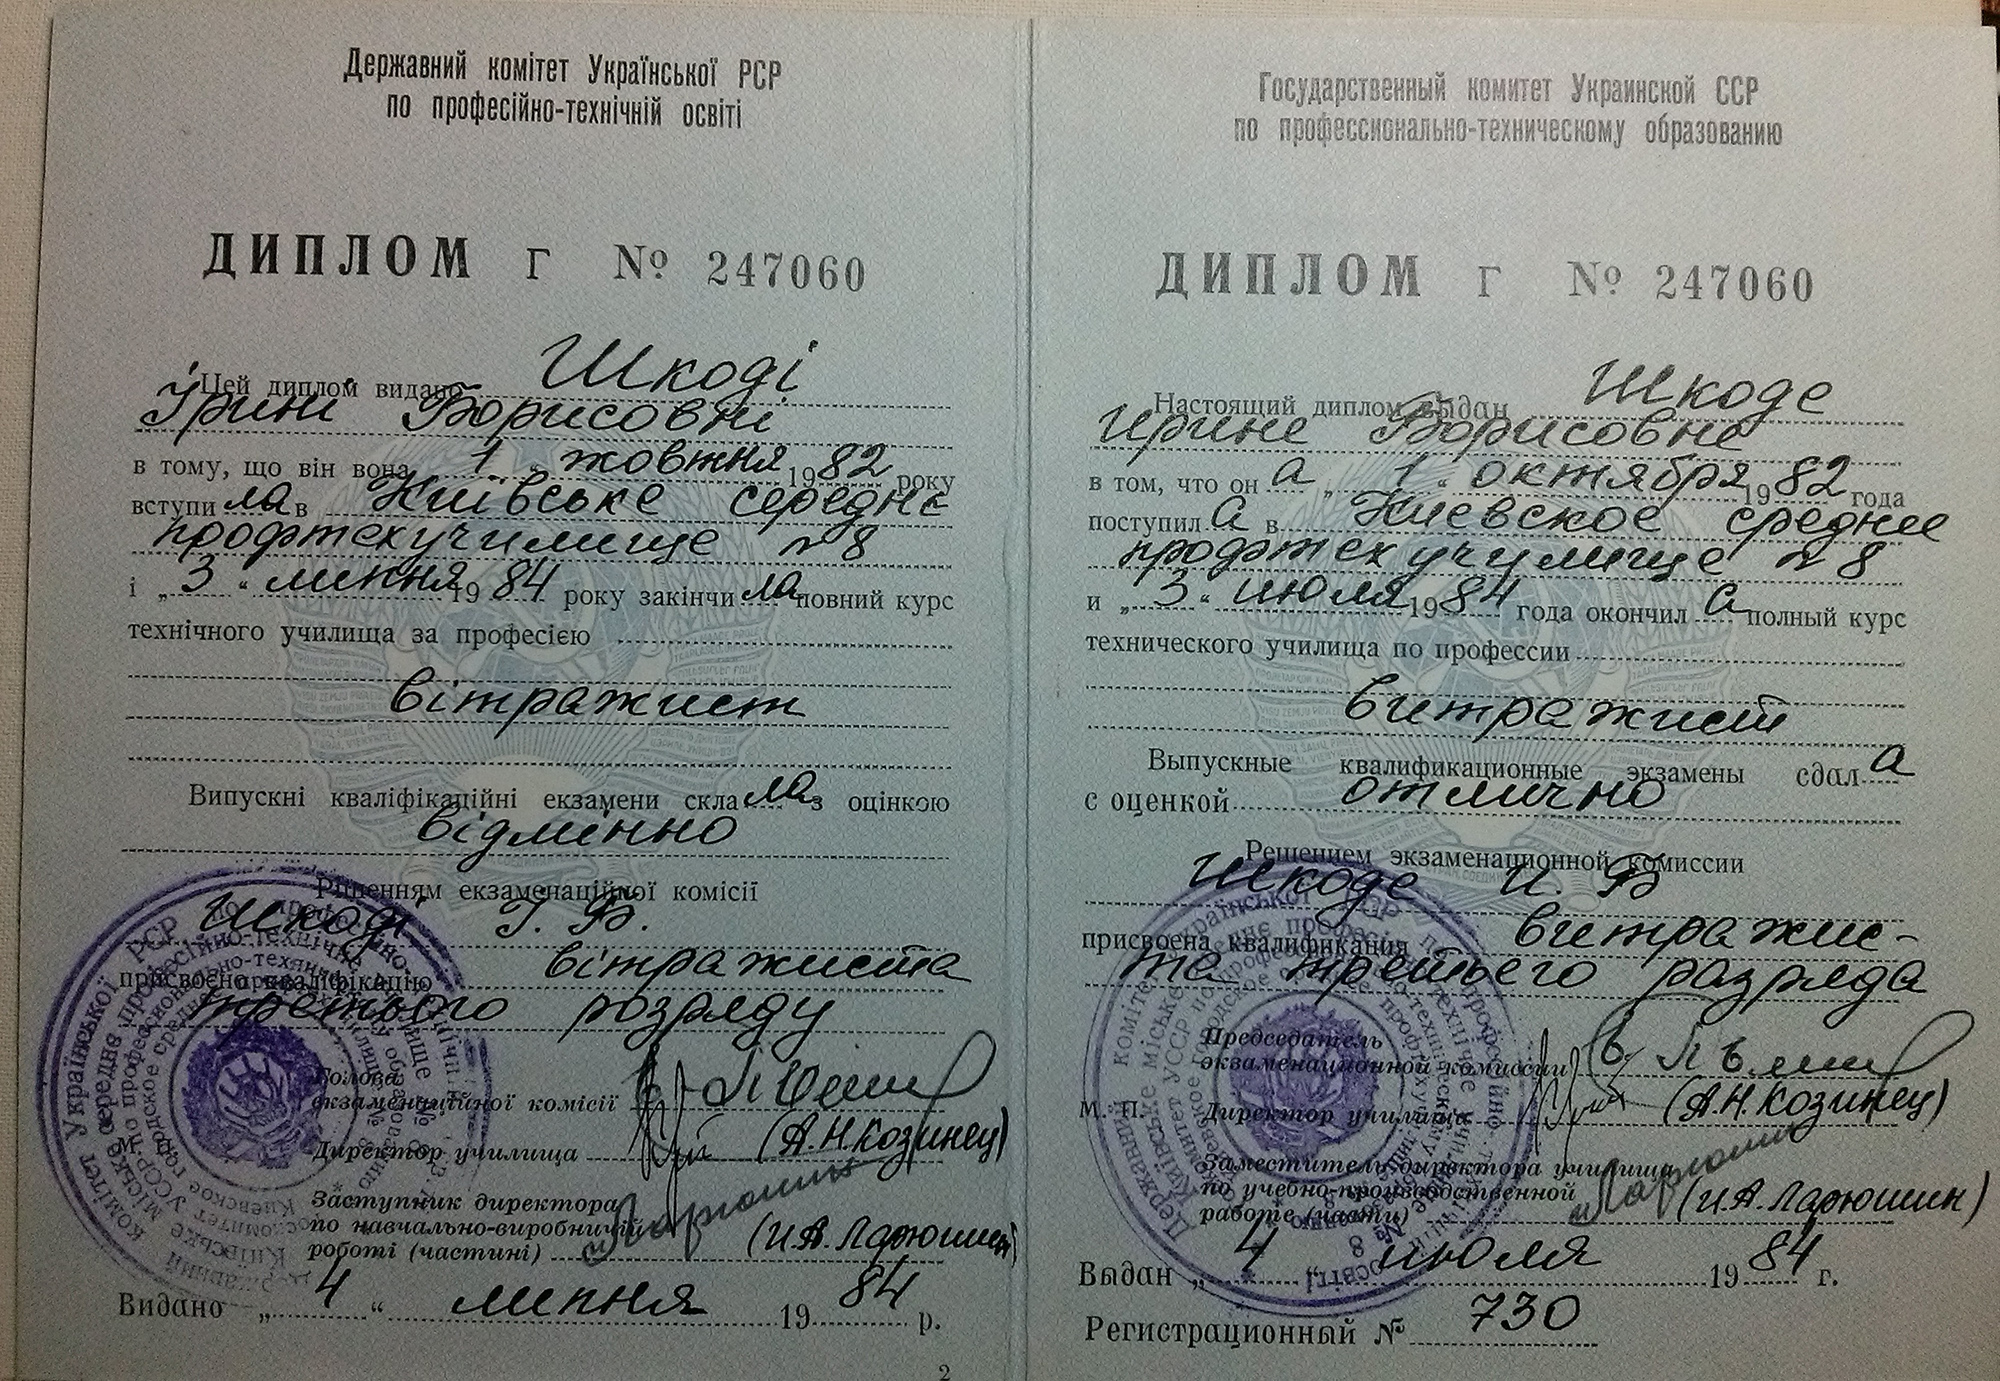 Державний комітет Української РСР
по професійно-технічній освіті
ДИПЛОМ Г № 247060
Цей диплом видано Шкоді
Ірині Борисовні
в тому, що він вона 1 " жовтня 1982 року
вступила в Київське середнє
профтехучилище № 8
і „ 3 " липня 1984 року закінчила повний курс
технічного училища за професією
вітражист
Випускні кваліфікаційні екзамени склала з оцінкою
відмінно
Рішенням екзаменаційної комісії
Шкоді І. Б.
присвоєно кваліфікацію вітражиста
третього розряду
Голова
екзаменаційної комісії
М. П.
Директор училища (А.Н.Козинец)
Заступник директора
по навчально-виробничій
роботі (частині) (И.А.Ларюшин)
Видано „ 4 " липня 1984 р.
2
Государственный комитет Украинской ССР
по профессионально-техническому образованию
ДИПЛОМ Г № 247060
Настоящий диплом выдан Шкоде
Ирине Борисовне
в том, что он а „ 1 " октября 1982 года
поступил а в Киевское среднее
профтехучилище № 8
и „ 3 " июля 1984 года окончил а полный курс
технического училища по профессии
витражист
Выпускные квалификационные экзамены сдал а
с оценкой отлично
Решением экзаменационной комиссии
Шкоде И. Б
присвоена квалификация витражис-
та третьего разряда
Председатель
экзаменационной комиссии
М. П. Директор училища (А.Н.Козинец)
Заместитель директора училища
по учебно-производственной
работе (части) (И.А.Ларюшин)
Выдан „ 4 „ июля 1984 г.
Регистрационный № 730